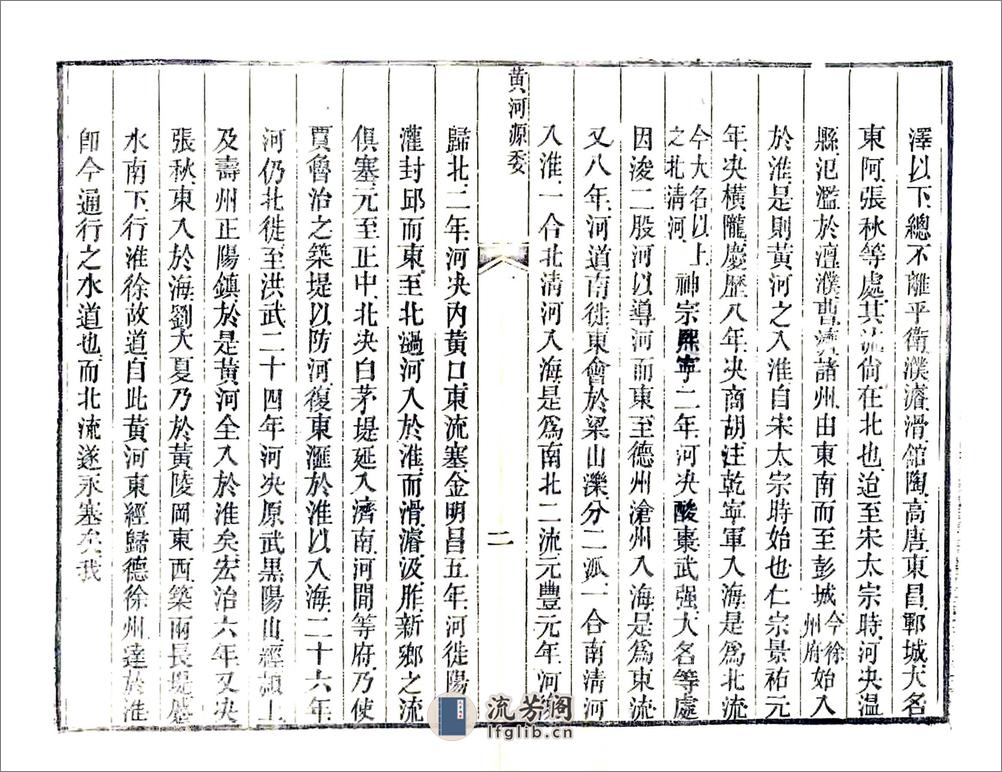 澤以下總不離平衛濮濬滑館陶高唐東昌鄆城大名
東阿張秋等處其流尚在北也迨至宋太宗時河决溫
縣氾濫於澶濮曹濟諸州由東南而至彭城今徐州府始入
於淮是則黃河之入淮自宋太宗時始也仁宗景祐元
年决橫隴慶歷八年决商胡注乾寧軍入海是爲北流
今大名以上之北清河神宗熙寧二年河决酸棗武强大名等處
因浚二股河以導河而東至德州滄州入海是爲東流
又八年河道南徙東會於梁山濼分二派一合南清河
入淮一合北清河入海是爲南北二流元豐元年河
黃河源委
二
歸北二年河决內黃口東流塞金明昌五年河徙陽
灌封邱而東至北過河入於淮而滑濬汲胙新鄉之流
俱塞元至正中北决白茅堤延入濟南河間等府乃使
賈魯治之築堤以防河復東滙於淮以入海二十六年
河仍北徙至洪武二十四年河决原武黑陽山經潁上
及壽州正陽鎮於是黃河全入於淮矣宏治六年又决
張秋東入於海劉大夏乃於黃陵岡東西築兩長堤
水南下行淮徐故道自此黃河東經歸德徐州達於淮
卽今通行之水道也而北流遂永塞矣我
流芳閣
lfglib.cn